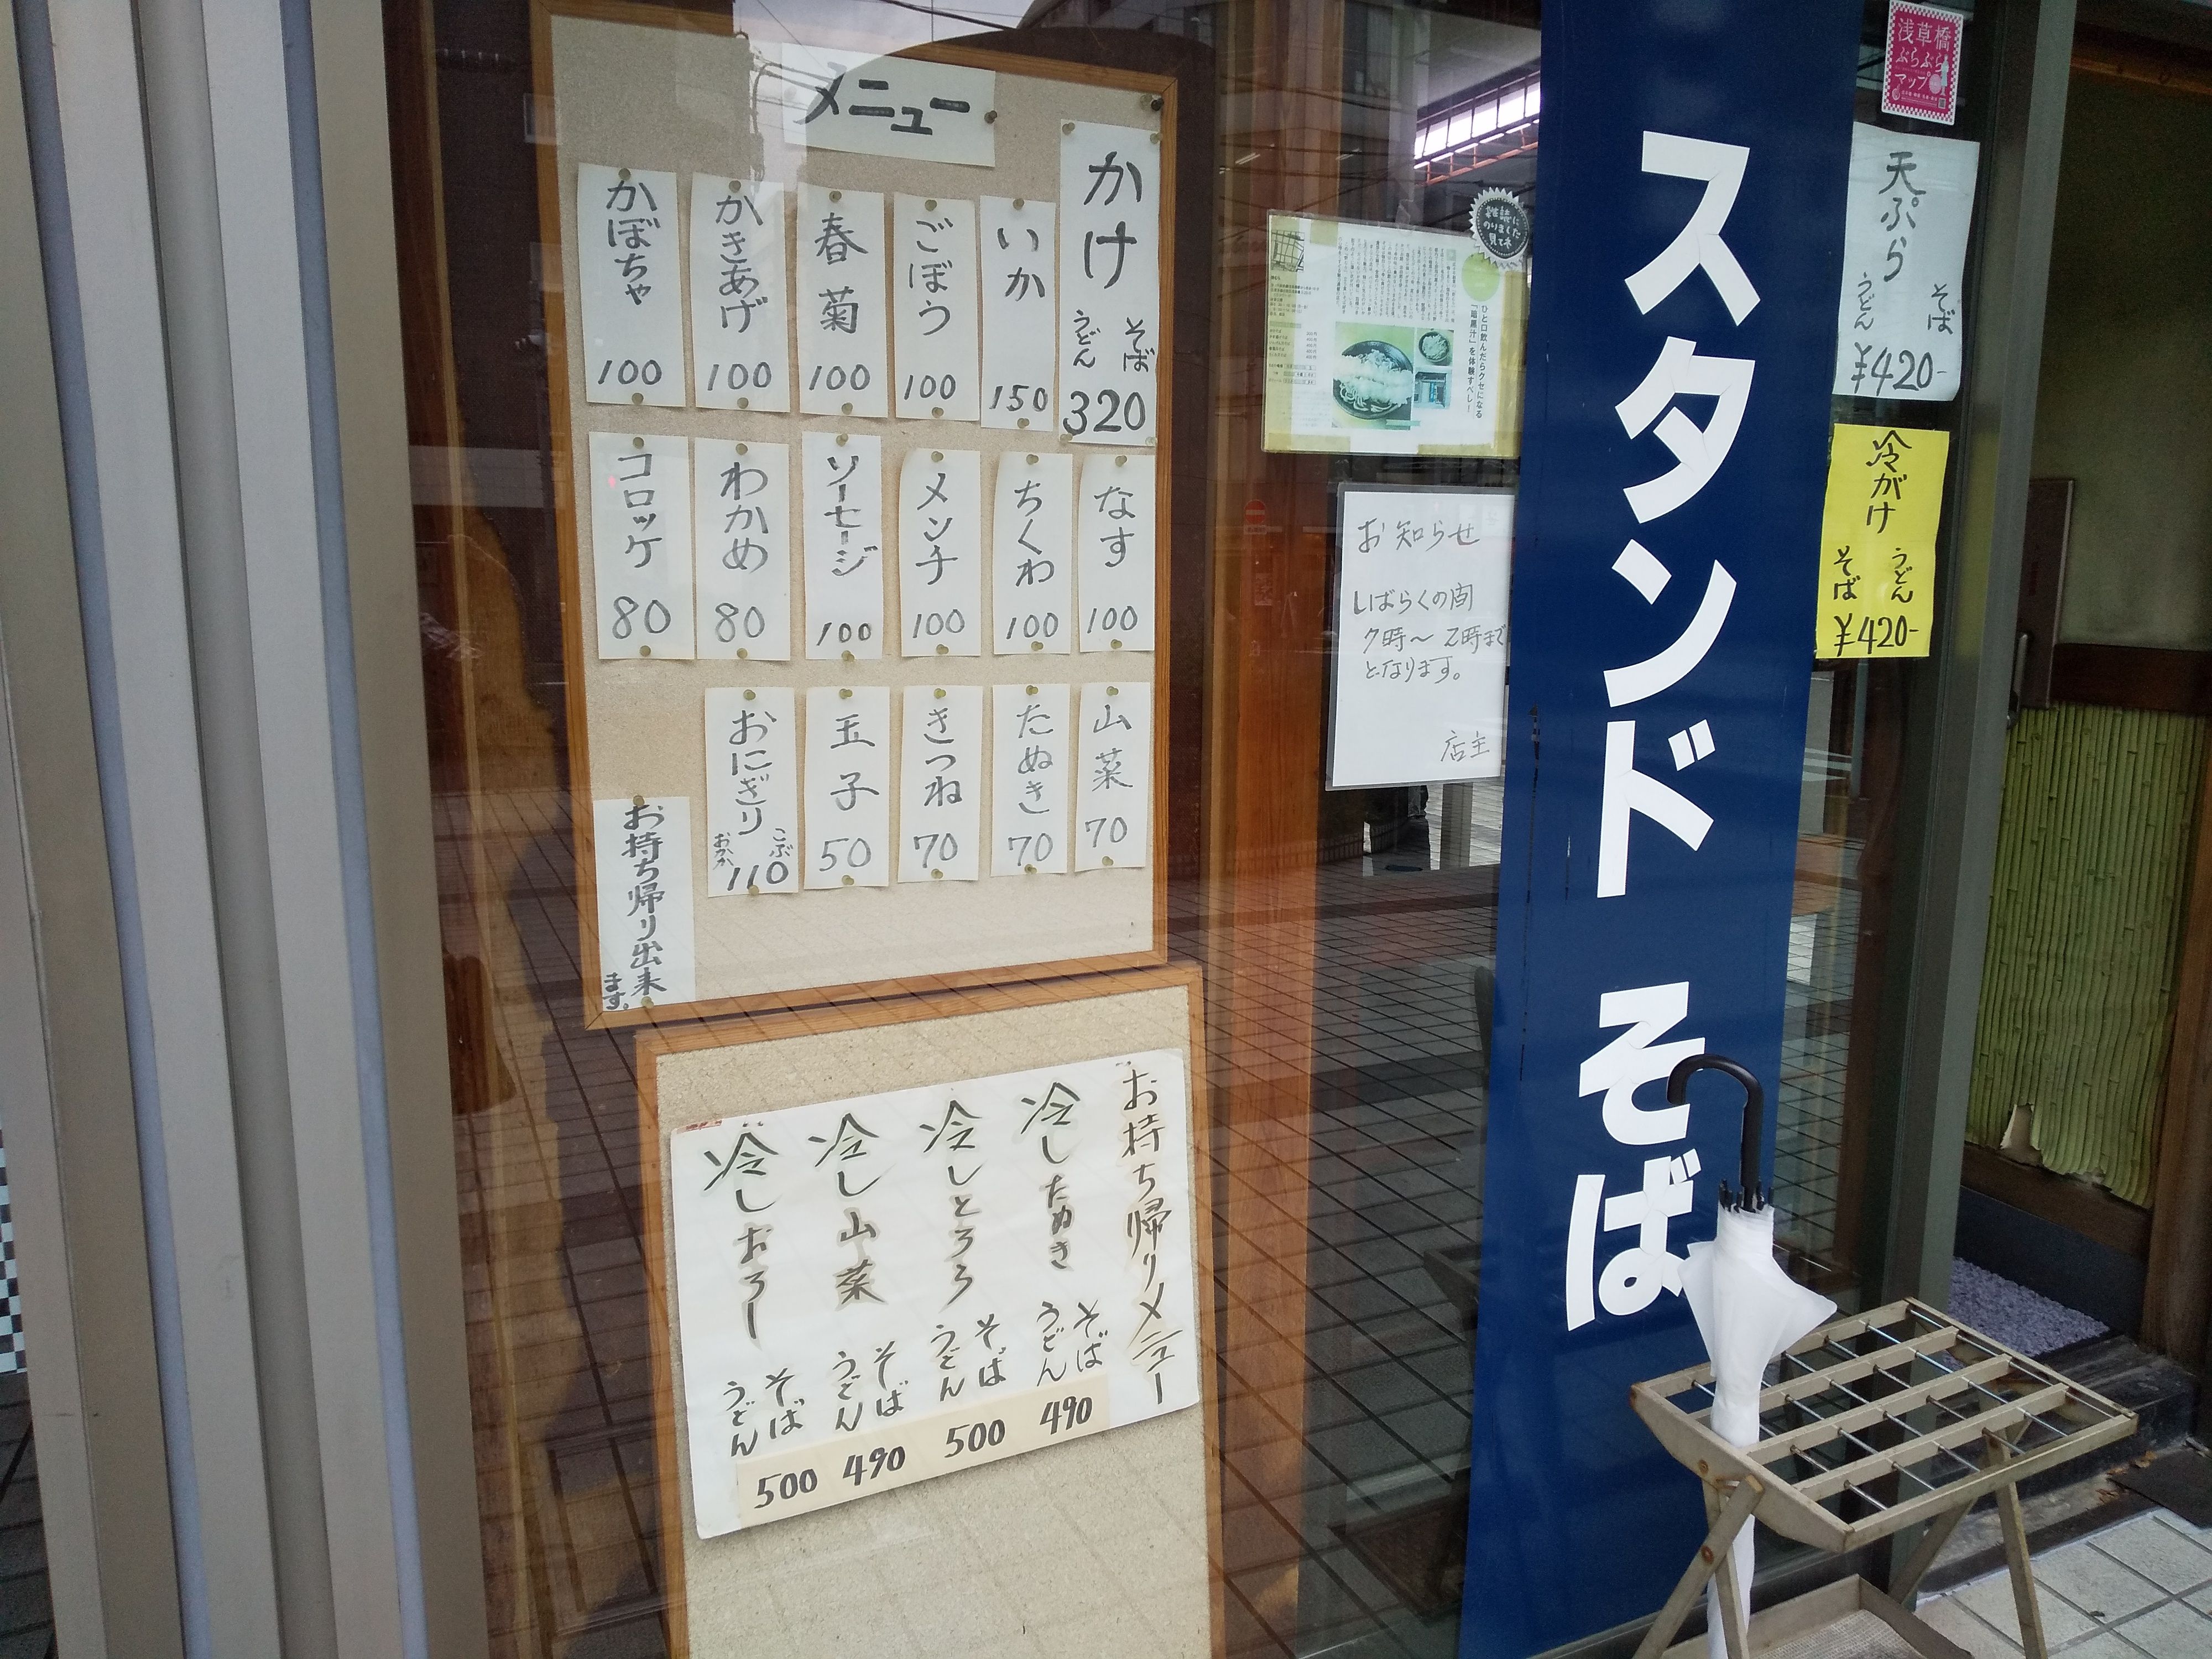 メニュー
かけ
そば
うどん
320
いか
150
ごぼう
100
春菊
100
かきあげ
100
かぼちゃ
100
なす
100
ちくわ
100
メンチ
100
ソーセージ
100
わかめ
80
コロッケ
80
山菜
70
たぬき
70
きつね
70
玉子
50
おにぎり
こぶ
おかか
110
お持ち帰り出来
ます。
お持ち帰りメニュー
冷したぬき
そば
うどん
490
冷しとろろ
そば
うどん
500
冷し山菜
そば
うどん
490
冷しおろし
そば
うどん
500
雑誌に
のりました
見てネ
ひと口飲んだらクセになる
「暗黒汁」を体験すべし!
お知らせ
しばらくの間
7時〜2時まで
となります。
店主
スタンド そば
浅草橋
ぶらぶら
マップ
天ぷら
そば
うどん
¥420-
冷がけ
うどん
そば
¥420-